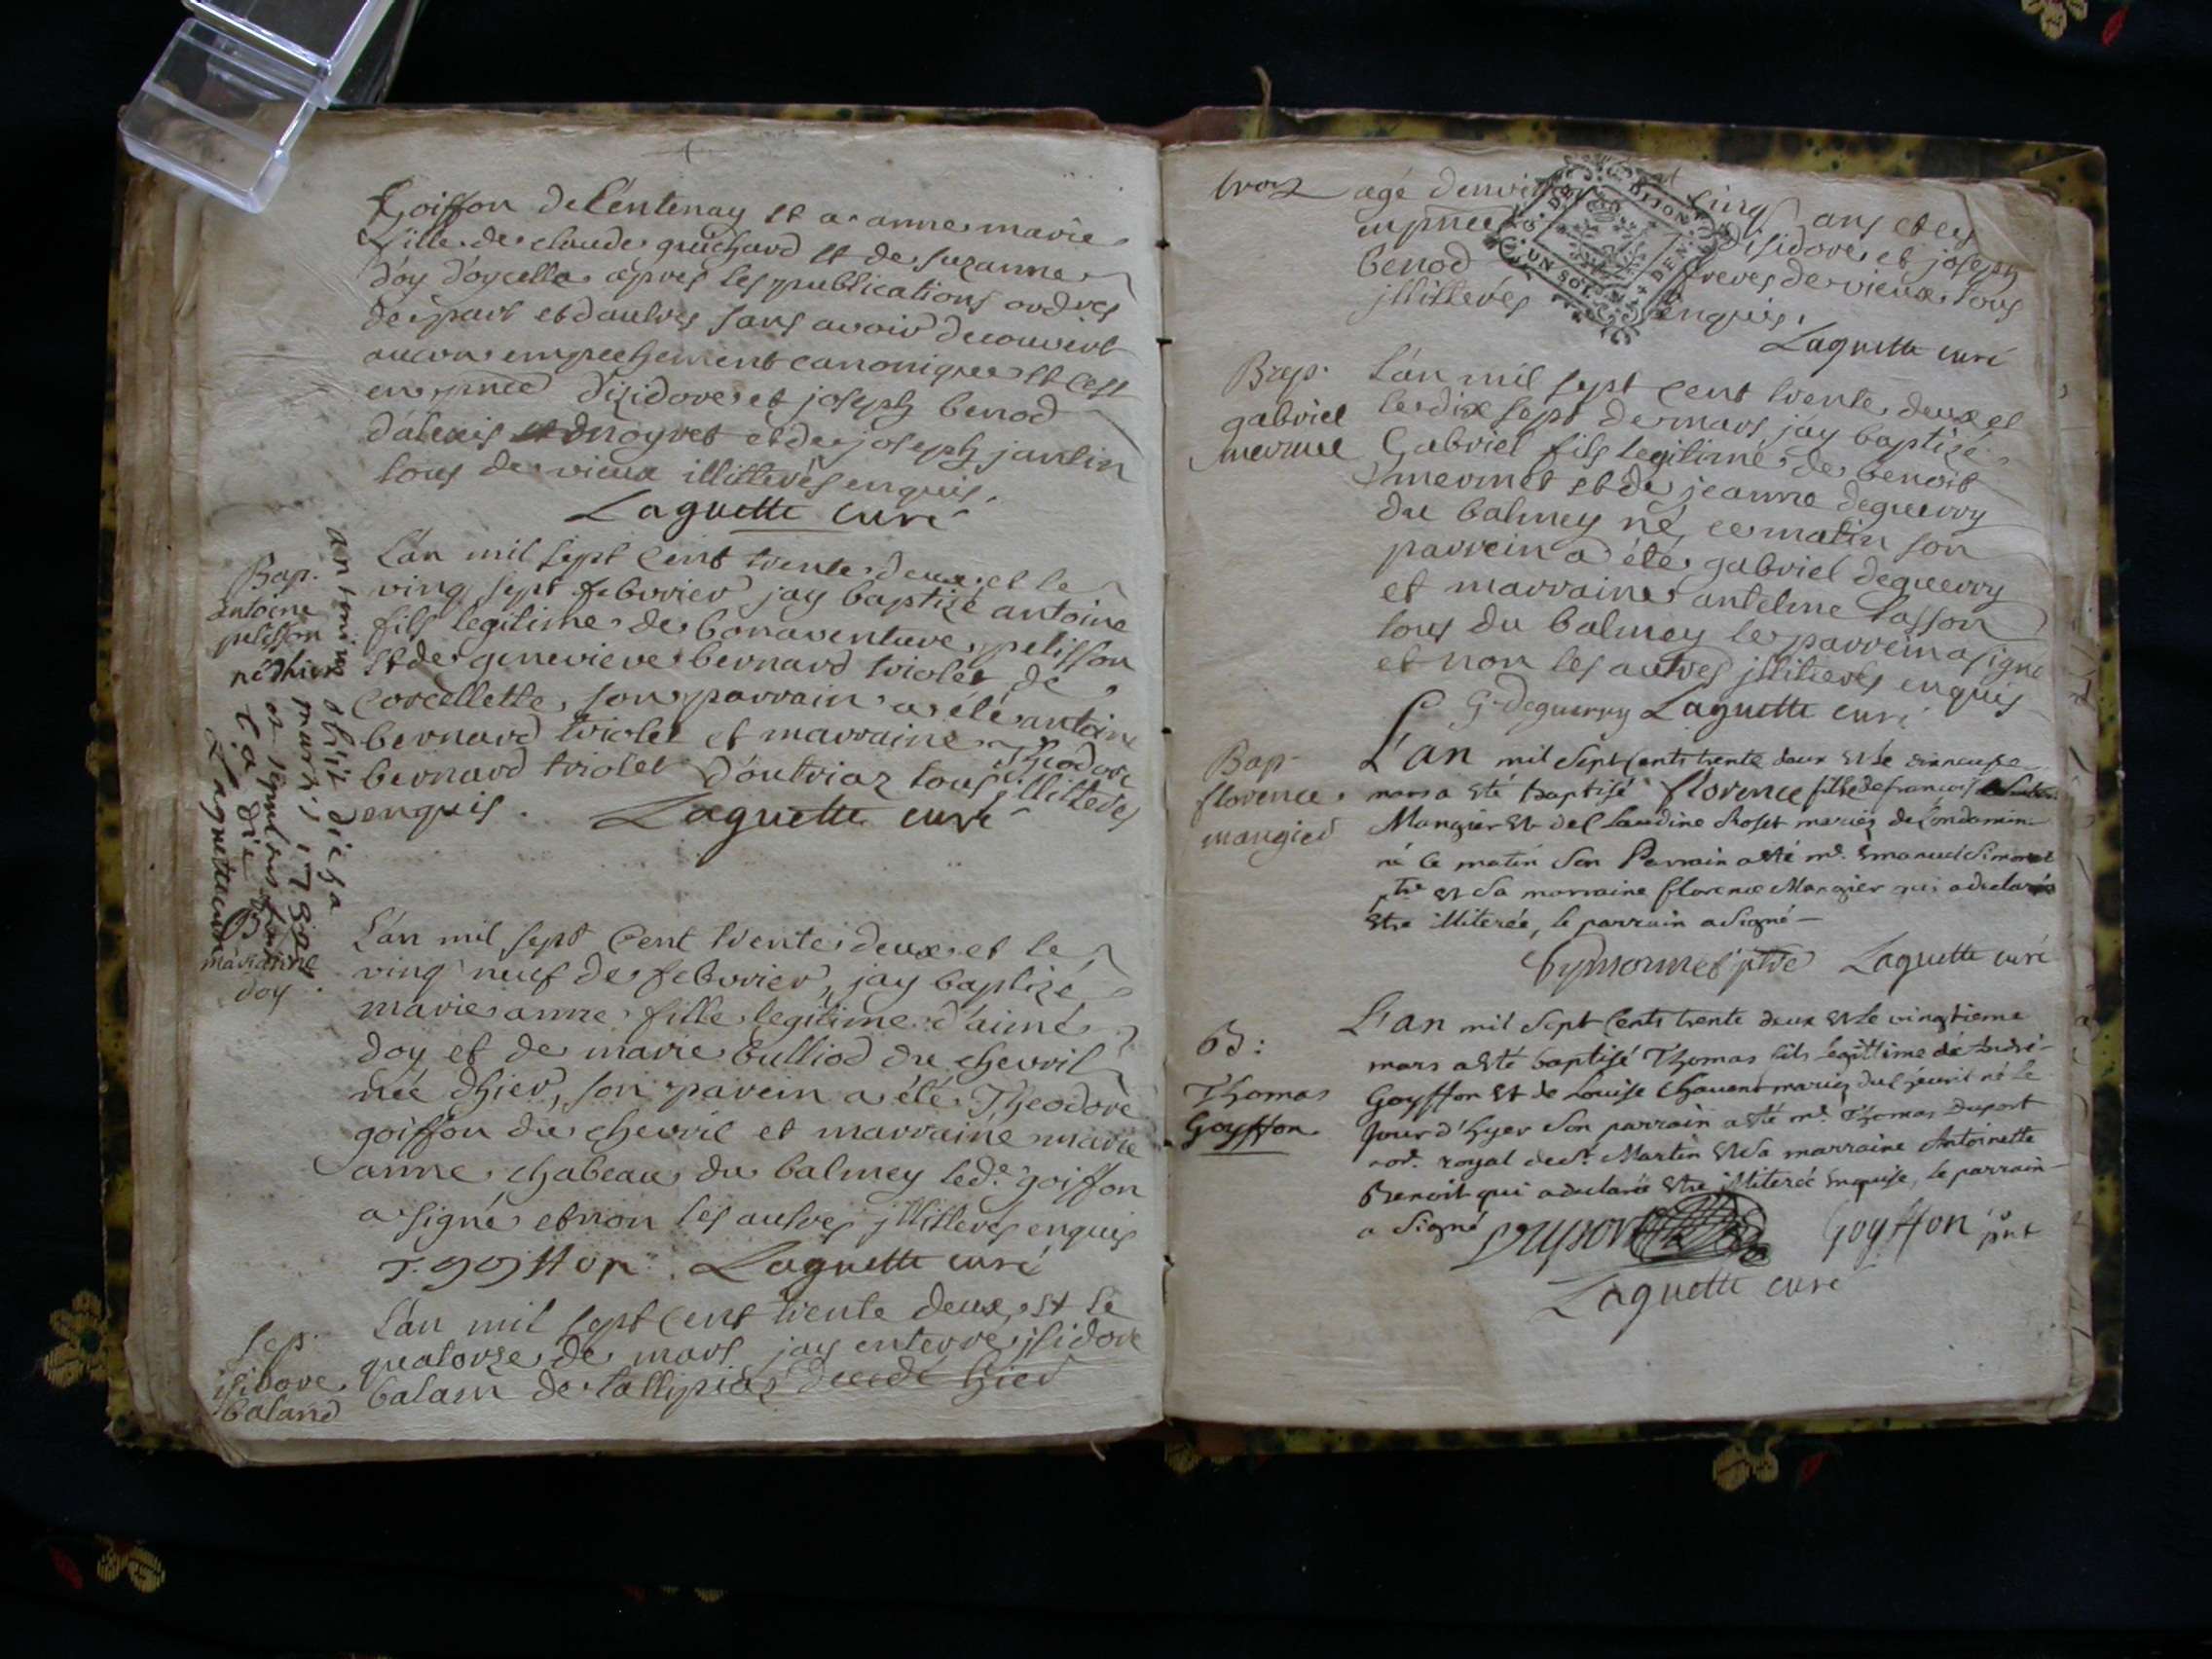 Goiffon de Lentenay et a anne marie
fille de claude guichard et de suzanne
d'oy d'oycella apres les publications ordres
de part et daultres sans avoir decouvert
aucun empechement canonique et cest
en pnce d'izidore et joseph benod
d'alexis et joseph jantin
tous de vieux illitterés enquis.
Laguette curé
Bap.
antoine
pelisson
né dhier
L'an mil sept cent trente deux et le
ving sept febvrier jay baptizé antoine
fils legitime de bonaventure pelisson
et de genevieve bernard triolet de
Corcellette, son parrain a élé antoine
bernard triolet et marraine Theodore
bernard triolet d'outriaz tous illitterés
enquis. Laguette curé
antonius obiit die 3a
martii 1732
et sepultus fuit
4a die
Laguette curé
B
marianne
doy
L'an mil sept cent trente deux et le
ving neuf de febvrier, jay baptizé
marie anne fille legitime d'aimé
doy et de marie bulliod du chevril
née dhier, son parein a élé Theodore
goiffon du chevril et marraine marie
anne chabeau du balmey led. goiffon
a signé et non les aultres jllitterés enquis
T. goyffon Laguette curé
Sep.
isidore
baland
L'an mil sept cent trente deux et le
quatorze de mars jay enterré jsidore
balam de decedé hier
trois agé denviron cinq ans et ey
en pnce d'isidore et joseph
benod freres de vieux tous
jllitterés enquis.
Laguette curé
Bap.
gabriel
mermet
L'an mil sept cent trente deux et
le dix sept de mars jay baptizé
Gabriel fils legitime de benoit
mermet et de jeanne deguerry
du balmey né ce matin son
parrein a été gabriel deguerry
et marraine antelme tasson
tous du balmey le parrein a signé
et non les autres jllitterés enquis
G. deguerry Laguette curé
Bap.
florence
maugied
L'an mil sept cents trente deux et le dixneufve
mars a eté baptisé florence fille de francois
Maugier et de Claudine Roset mariés de Condamine
né ce matin son Parrain a eté mr. Emanuel Simonet
ptre et sa marraine florence Maugier qui a declarés
etre illiterée, le parrain a signé
Symonnet ptre Laguette curé
B:
Thomas
Goyffon
L'an mil sept cents trente deux et le vingtieme
mars a eté baptisé Thomas fils legittime de André
Goyffon et de Louise Chauent mariés du Cheuril né le
jour d'hyer son parrain a eté mr. Thomas Duport
not. royal de St. Martin et sa marraine Antoinette
Benoit qui a declarée etre illiterée enquise, le parrain
a signé Duport Goyffon pnt
Laguette curé